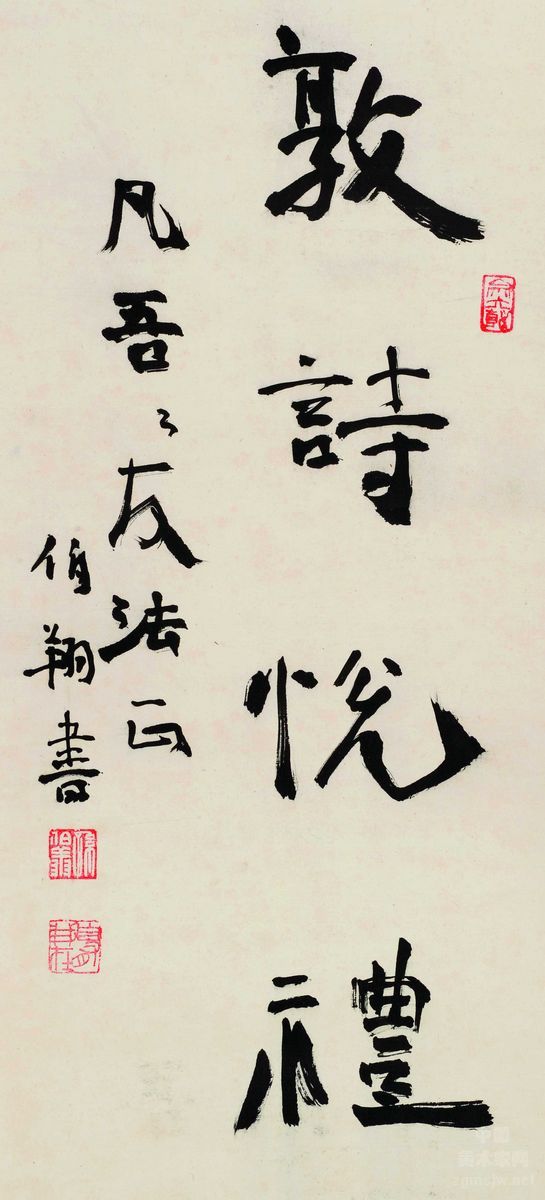 敦詩悦禮
凡吾〻友法正
翔書
中国
美术家网
zgmsjw.net